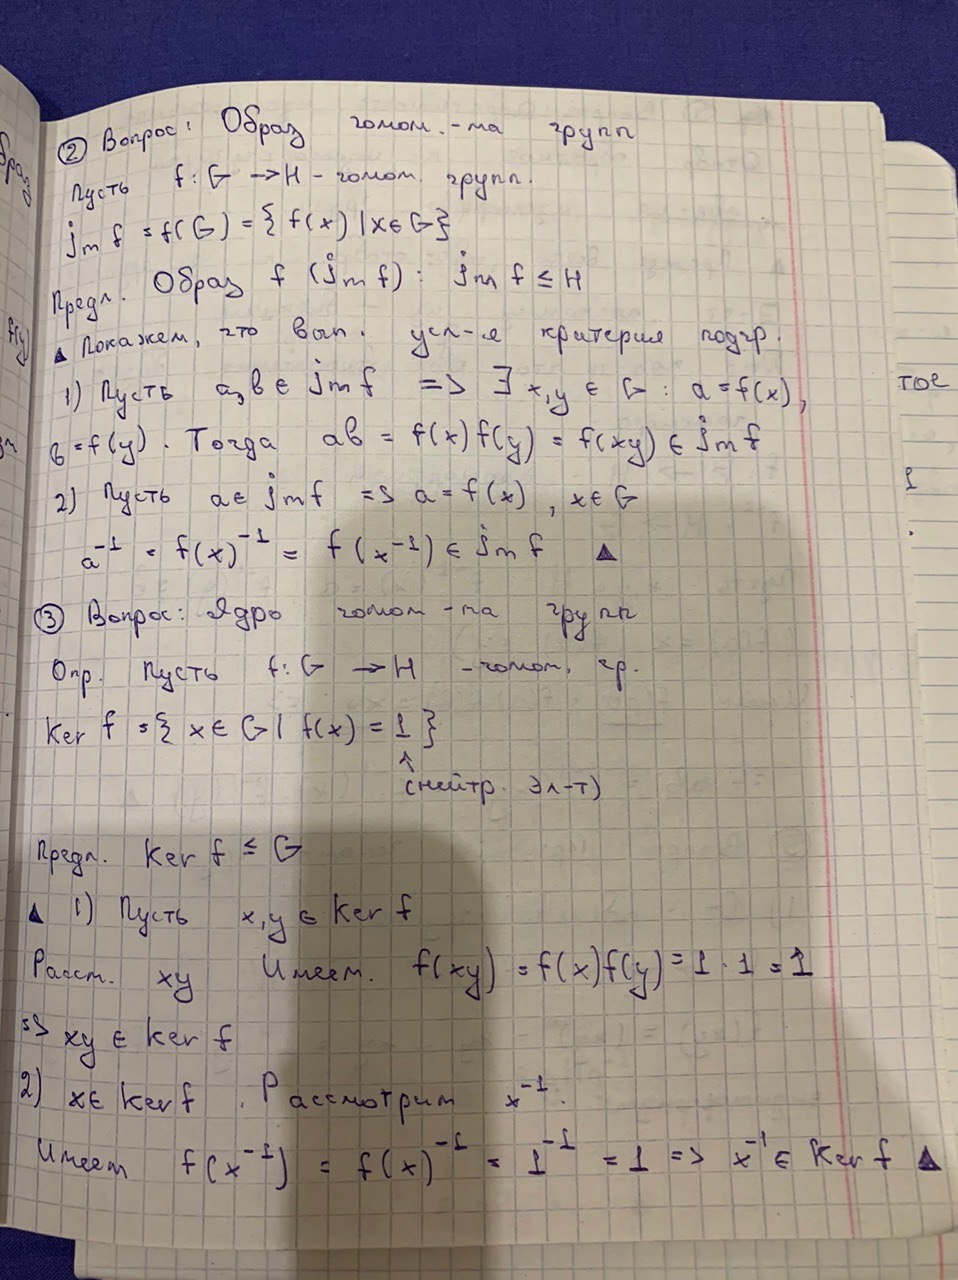 ② Вопрос: Образ гомом.-ма групп
Пусть f: G → H - гомом. групп.
Jm f = f(G) = { f(x) | x ∈ G}
Предл. Образ f (Jm f) : Jm f ≤ H
▲ Покажем, что вып. усл-я критерия подгр.
1) Пусть a, b ∈ Jm f => ∃ x, y ∈ G : a = f(x),
b = f(y). Тогда ab = f(x) f(y) = f(xy) ∈ Jm f
2) Пусть a ∈ Jm f => a = f(x), x ∈ G
a⁻¹ = f(x)⁻¹ = f(x⁻¹) ∈ Jm f ▲
③ Вопрос: Ядро гомом-ма групп
Опр. Пусть f: G → H - гомом. гр.
Ker f = { x ∈ G | f(x) = 1 }
↑
(нейтр. эл-т)
Предл. Ker f ≤ G
▲ 1) Пусть x, y ∈ Ker f
Расст. xy Имеем. f(xy) = f(x) f(y) = 1 · 1 = 1
=> xy ∈ Ker f
2) x ∈ Ker f. Рассмотрим x⁻¹.
Имеем f(x⁻¹) = f(x)⁻¹ = 1⁻¹ = 1 => x⁻¹ ∈ Ker f ▲
f(y)
тое
1